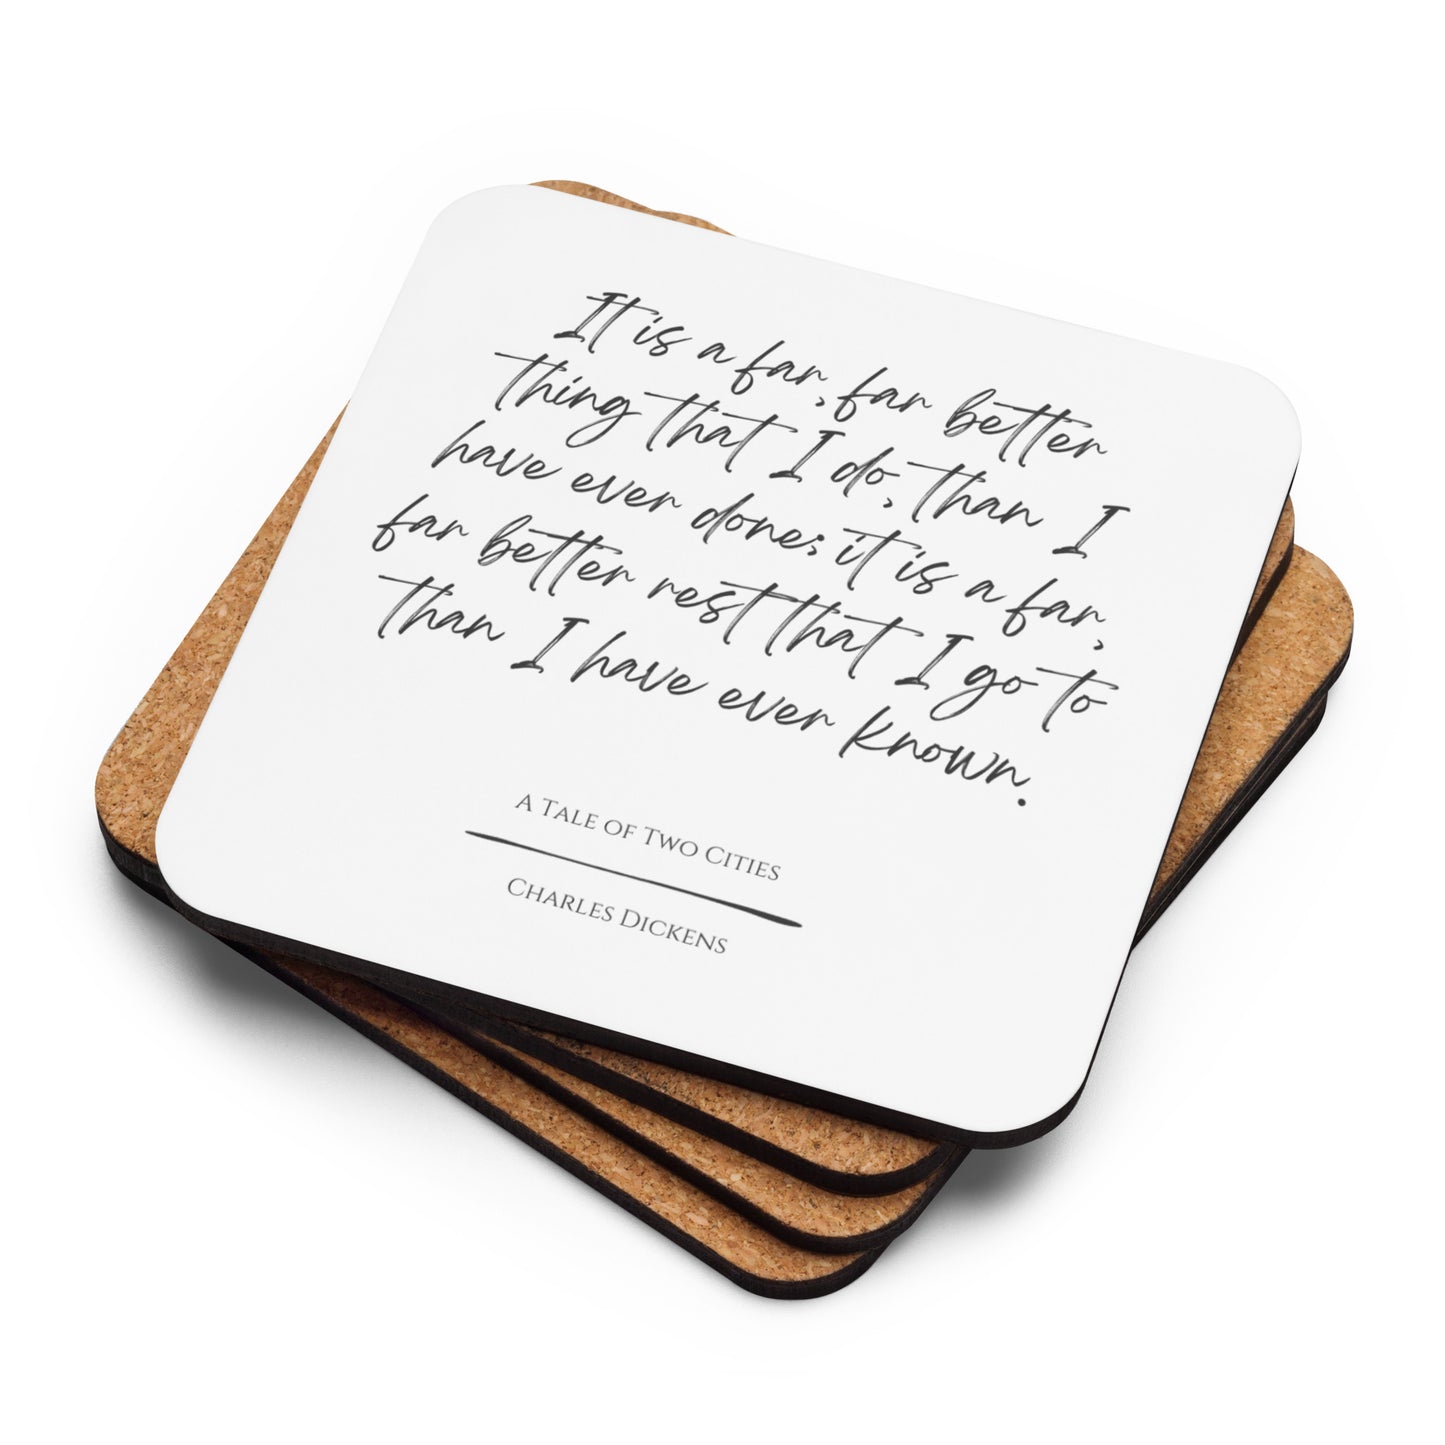 It is a far, far better
thing that I do, than I
have ever done; it is a far,
far better rest that I go to
than I have ever known.
A Tale of Two Cities
Charles Dickens